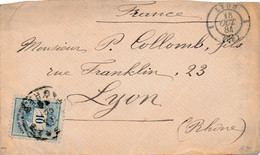 France
Monsieur P. Collomb, fils
rue Franklin, 23
Lyon
(Rhône)
LYON
OCT
84